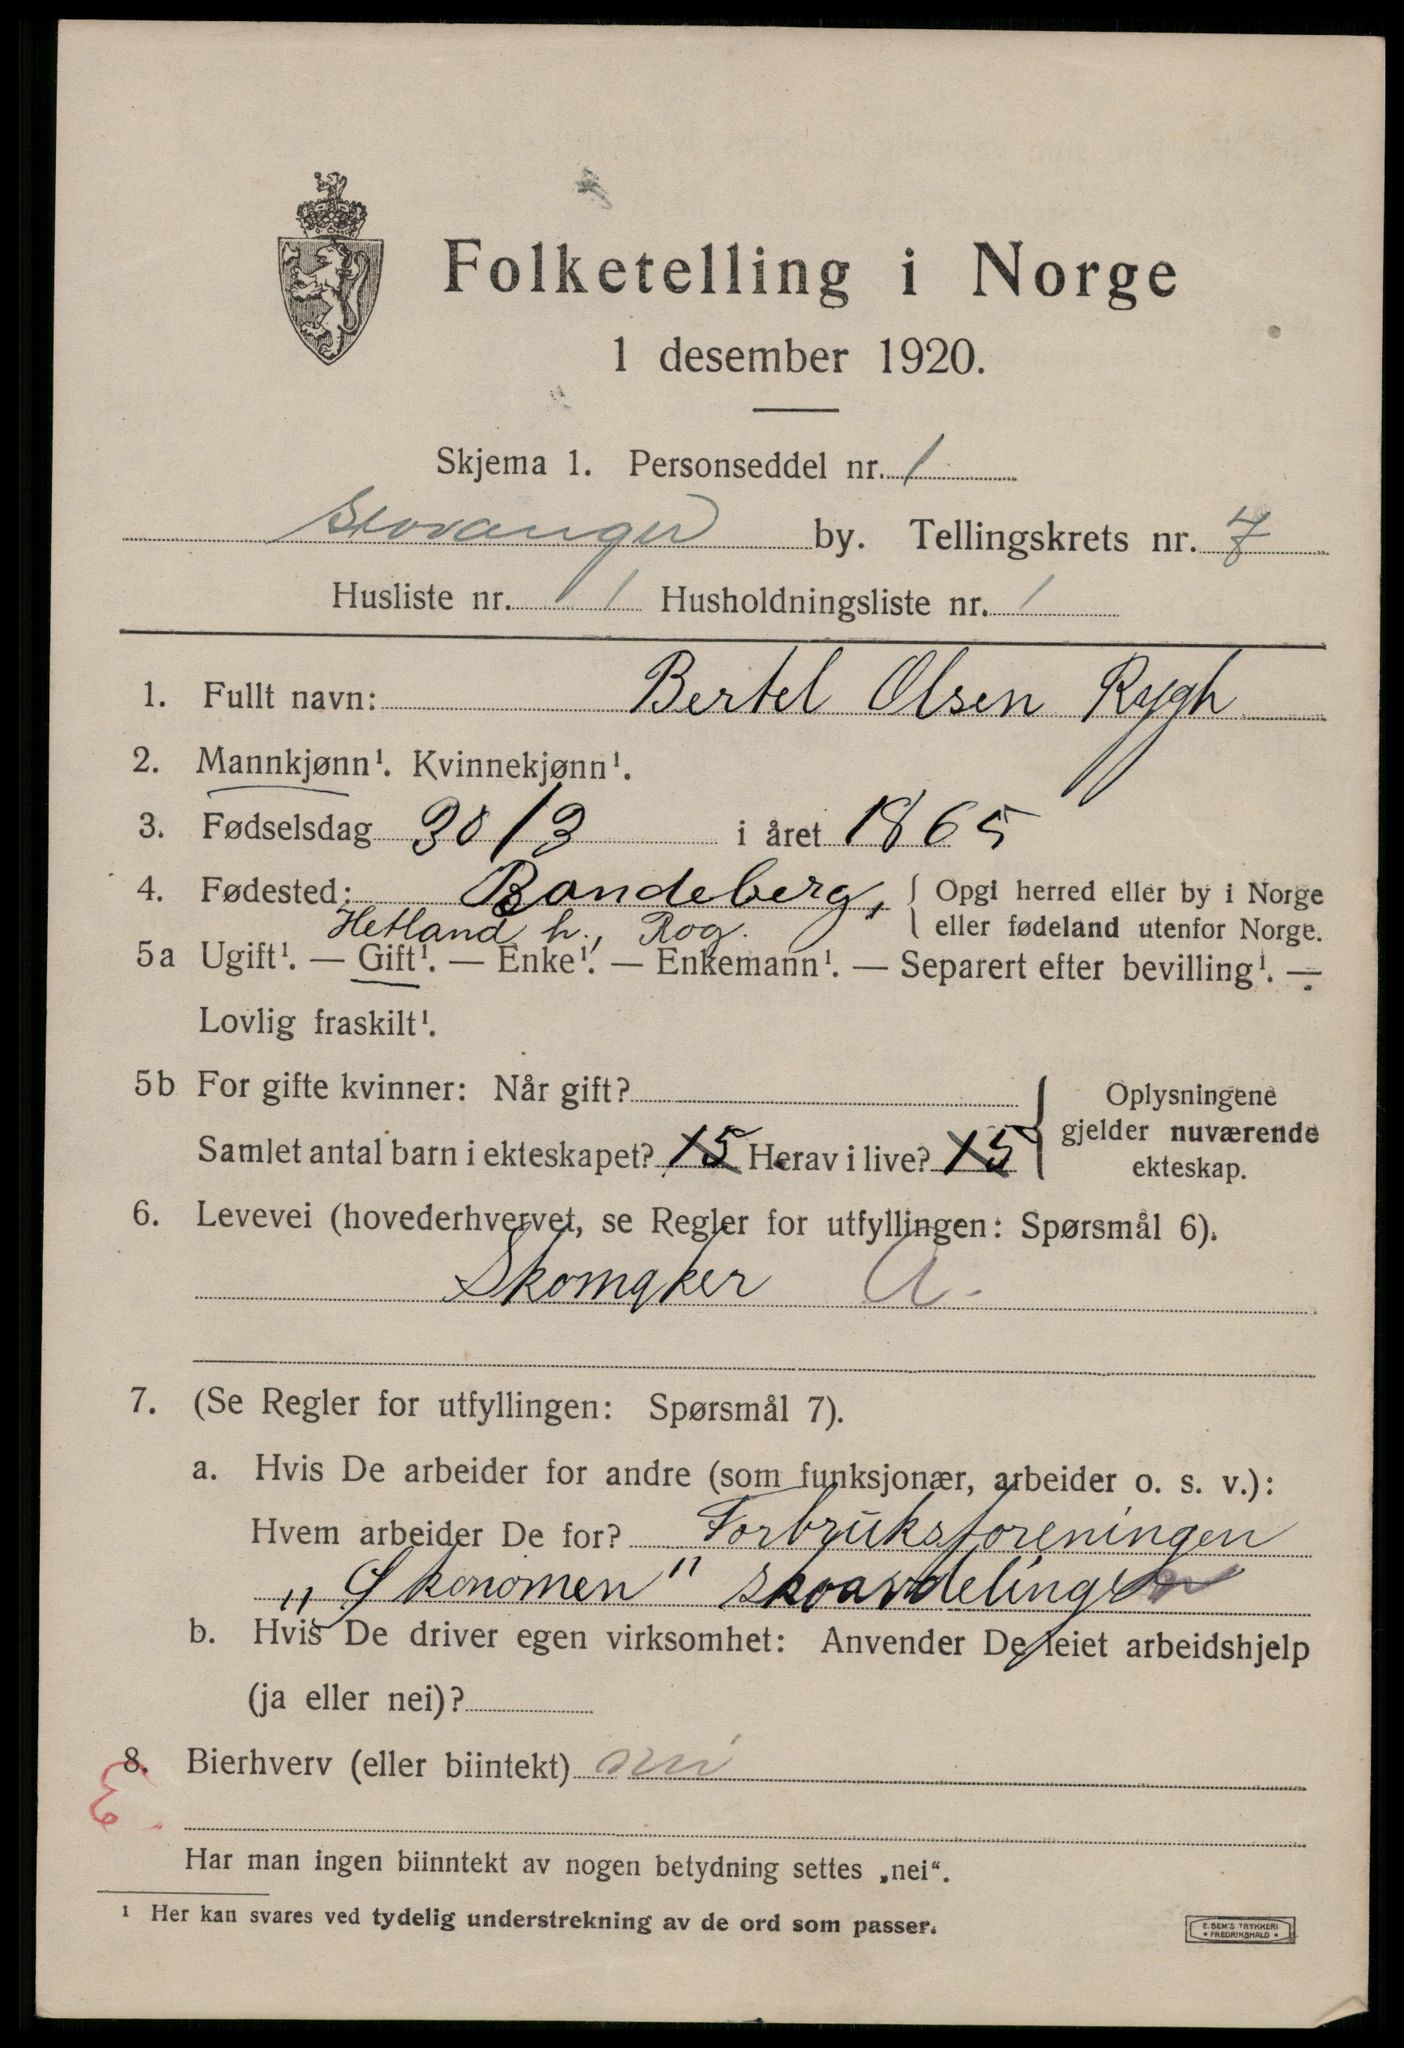 Folketelling i Norge
1 desember 1920.
Skjema 1. Personseddel nr. 1
Stavanger by. Tellingskrets nr. 7
Husliste nr. 1 Husholdningsliste nr. 1
1. Fullt navn: Bertel Olsen Rygh
2. Mannkjønn¹. Kvinnekjønn¹.
3. Fødselsdag 30/3 i året 1865
4. Fødested: Bandeberg, Opgi herred eller by i Norge
Hetland h., Rog. eller fødeland utenfor Norge.
5a Ugift¹. — Gift¹. — Enke¹. — Enkemann¹. — Separert efter bevilling¹. —
Lovlig fraskilt¹.
5b For gifte kvinner: Når gift? Oplysningene
gjelder nuværende
Samlet antal barn i ekteskapet? 5 Herav i live? 5 ekteskap.
6. Levevei (hovederhvervet, se Regler for utfyllingen: Spørsmål 6).
Skomaker A.
7. (Se Regler for utfyllingen: Spørsmål 7).
a. Hvis De arbeider for andre (som funksjonær, arbeider o. s. v.):
Hvem arbeider De for? Forbruksforeningen
„Økonomen" skoavdeling
b. Hvis De driver egen virksomhet: Anvender De leiet arbeidshjelp
(ja eller nei)?
8. Bierhverv (eller biintekt) nei
Har man ingen biinntekt av nogen betydning settes „nei“.
¹ Her kan svares ved tydelig understrekning av de ord som passer.
E. SEM'S TRYKKERI
• FREDRIKSHALD •